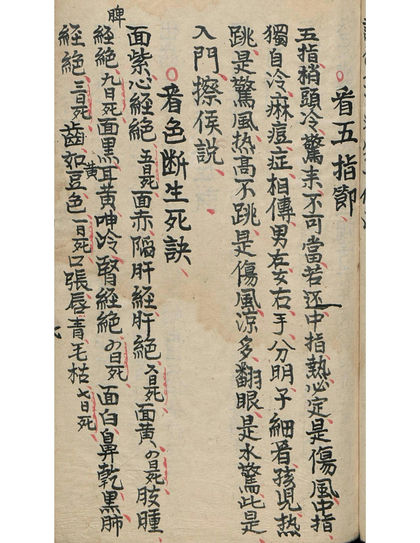 ○看五指節
五指梢頭冷驚來不可當若还中指熱必定是傷風中指
獨自冷麻痘症相傳男左女右手分明子細看孩児热
跳是驚風热高不跳是傷風凉多翻眼是水驚此是
入門擦侯說
○看色断生死訣
面紫心經絶五日死面赤陷肝經肝絶日死面黄日死肢腫
脾經絶九日死面黑耳黄呻冷腎經絶日死面白鼻乾黑肺
經絶三日死齒如黄豆色一日死口張唇青毛枯七日死